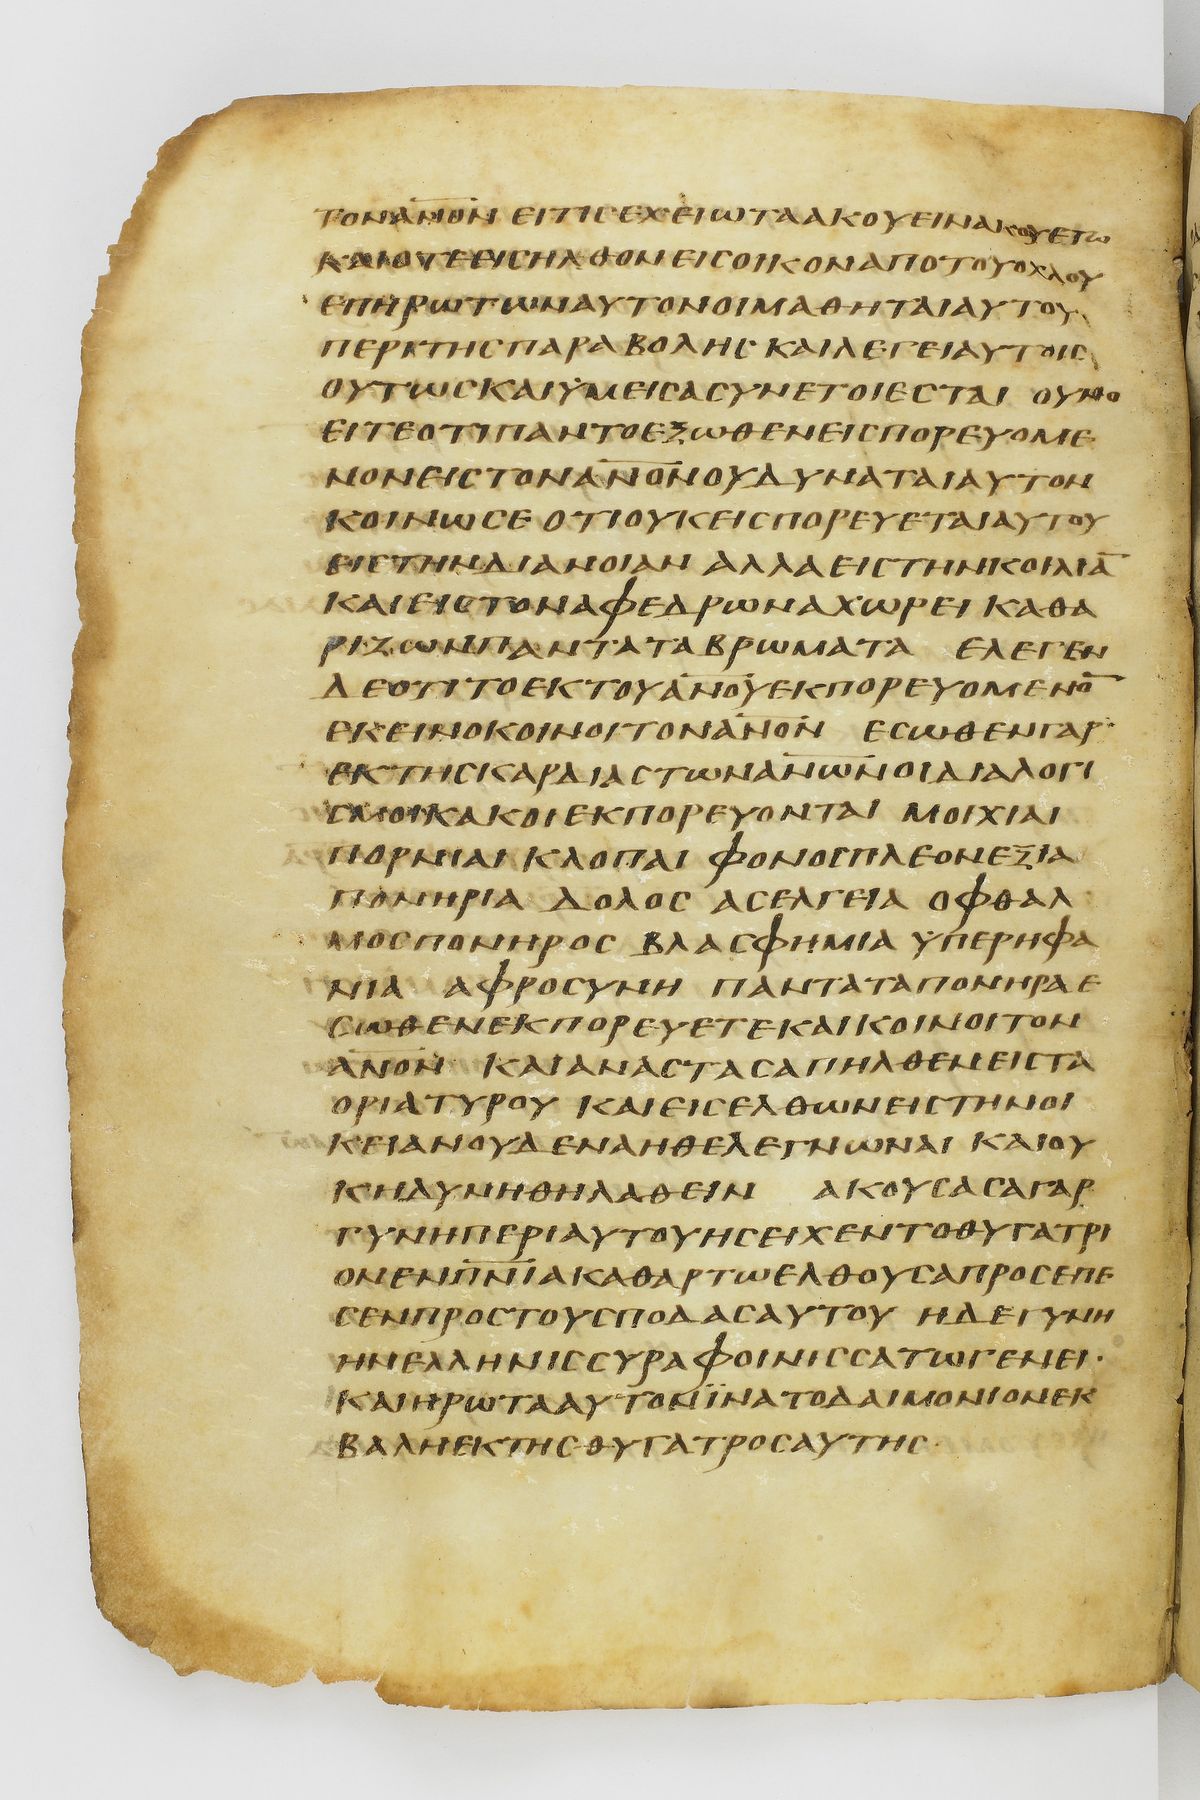 ΤΟΝΑΝ̅Ο̅Ν ΕΙΤΙCΕΧΕΙΩΤΑΑΚΟΥΕΙΝΑΚΟΥΕΤΩ
ΚΑΙΟΤΕΕΙCΗΛΘΟΝΕΙCΟΙΚΟΝΑΠΟΤΟΥΟΧΛΟΥ
ΕΠΗΡΩΤΩΝΑΥΤΟΝΟΙΜΑΘΗΤΑΙΑΥΤΟΥ
ΠΕΡΙΤΗCΠΑΡΑΒΟΛΗC· ΚΑΙΛΕΓΕΙΑΥΤΟΙC
ΟΥΤΩCΚΑΙΥΜΕΙCΑCΥΝΕΤΟΙΕCΤΑΙ ΟΥΝΟ
ΕΙΤΕΟΤΙΠΑΝΤΟΕΞΩΘΕΝΕΙCΠΟΡΕΥΟΜΕ
ΝΟΝΕΙCΤΟΝΑΝ̅Ο̅ΝΟΥΔΥΝΑΤΑΙΑΥΤΟΝ
ΚΟΙΝΩCΕ ΟΤΙΟΥΚΕΙCΠΟΡΕΥΕΤΑΙΑΥΤΟΥ
ΕΙCΤΗΝΔΙΑΝΟΙΑΝ ΑΛΛΑΕΙCΤΗΝΚΟΙΛΙΑ̅
ΚΑΙΕΙCΤΟΝΑΦΕΔΡΩΝΑΧΩΡΕΙ ΚΑΘΑ
ΡΙΖΩΝΠΑΝΤΑΤΑΒΡΩΜΑΤΑ ΕΛΕΓΕΝ
ΔΕΟΤΙΤΟΕΚΤΟΥΑΝ̅Ο̅ΥΕΚΠΟΡΕΥΟΜΕΝΟ̅
ΕΚΕΙΝΟΚΟΙΝΟΙΤΟΝΑΝ̅Ο̅Ν ΕCΩΘΕΝΓΑΡ
ΕΚΤΗCΚΑΡΔΙΑCΤΩΝΑΝ̅Ω̅ΝΟΙΔΙΑΛΟΓΙ
CΜΟΙΚΑΚΟΙΕΚΠΟΡΕΥΟΝΤΑΙ ΜΟΙΧΙΑΙ
ΠΟΡΝΙΑΙ ΚΛΟΠΑΙ ΦΟΝΟΙΠΛΕΟΝΕΞΙΑ
ΠΟΝΗΡΙΑ ΔΟΛΟC ΑCΕΛΓΕΙΑ ΟΦΘΑΛ
ΜΟCΠΟΝΗΡΟC ΒΛΑCΦΗΜΙΑ ΥΠΕΡΗΦΑ
ΝΙΑ ΑΦΡΟCΥΝΗ ΠΑΝΤΑΤΑΠΟΝΗΡΑΕ
CΩΘΕΝΕΚΠΟΡΕΥΕΤΕΚΑΙΚΟΙΝΟΙΤΟΝ
ΑΝ̅Ο̅Ν ΚΑΙΑΝΑCΤΑCΑΠΗΛΘΕΝΕΙCΤΑ
ΟΡΙΑΤΥΡΟΥ ΚΑΙΕΙCΕΛΘΩΝΕΙCΤΗΝΟΙ
ΚΕΙΑΝΟΥΔΕΝΑΗΘΕΛΕΓΝΩΝΑΙ ΚΑΙΟΥ
ΚΗΔΥΝΗΘΗΛΑΘΕΙΝ ΑΚΟΥCΑCΑΓΑΡ
ΓΥΝΗΠΕΡΙΑΥΤΟΥΗCΕΙΧΕΝΤΟΘΥΓΑΤΡΙ
ΟΝΕΝΠ̅Ν̅ΙΑΚΑΘΑΡΤΩΕΛΘΟΥCΑΠΡΟCΕΠΕ
CΕΝΠΡΟCΤΟΥCΠΟΔΑCΑΥΤΟΥ ΗΔΕΓΥΝΗ
ΗΝΕΛΛΗΝΙCCΥΡΑΦΟΙΝΙCCΑΤΩΓΕΝΕΙ·
ΚΑΙΗΡΩΤΑΑΥΤΟΝΪΝΑΤΟΔΑΙΜΟΝΙΟΝΕΚ
ΒΑΛΗΕΚΤΗCΘΥΓΑΤΡΟCΑΥΤΗC·